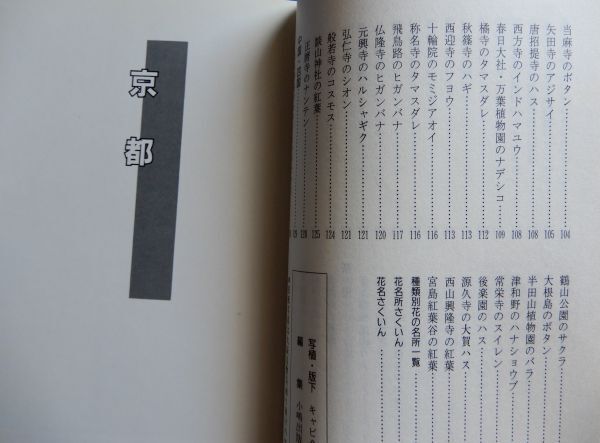 当麻寺のボタン……104
矢田寺のアジサイ……105
唐招提寺のハス……108
西方寺のインドハマユウ……108
春日大社・万葉植物園のナデシコ……109
橘寺のタマスダレ……112
秋篠寺のハギ……113
西迎寺のフヨウ……113
十輪院のモミジアオイ……116
称名寺のタマスダレ……116
飛鳥路のヒガンバナ……117
仏隆寺のヒガンバナ……120
元興寺のハルシャギク……121
弘仁寺のシオン……121
般若寺のコスモス……124
談山神社の紅葉……125
正暦寺のナンテン……128
鶴山公園のサクラ
大根島のボタン
半田山植物園のバラ
津和野のハナショウブ
常栄寺のスイレン
後楽園のハス
源久寺の大賀ハス
西山興隆寺の紅葉
宮島紅葉谷の紅葉
種類別花の名所一覧
花名所さくいん
花名さくいん
写植・版下 キャピ
編集 小嶋出版
京都